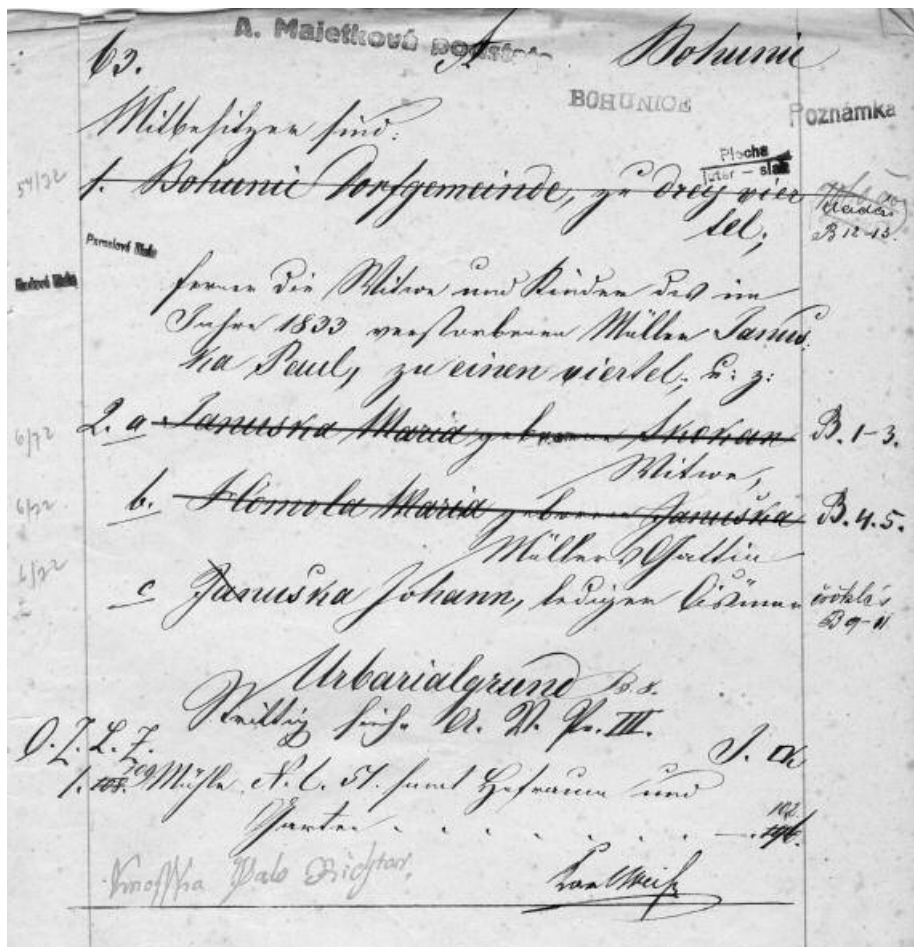 A. Majetková podstata
63. Bohunic
BOHUNICE
Poznámka
Mitbesitzer sind:
Plocha
jutár – siah
54/72
1. Bohunic Dorfgemeinde, zu drey vier
tel;
B 12-13.
Parcelové číslo
ferner die Witwe und Kinder des im
Jahre 1833 verstorbenen Müller Janus
ka Paul, zu einen viertel; u: z:
6/72 2. a Januska Maria geborene Skokan B. 1-3.
Witwe,
6/72 b. Homola Maria geborene Januška B. 4. 5.
Müllers Gattin
6/72 c Januška Johann, lediger öröklés
B 9-11
Urbarialgrund B. 8.
Strittig siehe Cr. V. Pr. III.
O. Z. L. Z. J. □k
1. 108. 109 Mühle N. C. 51. samt Hofraum und
Garten . . . . . . . —. 102.
196.
Richtar.
Karl Weisz